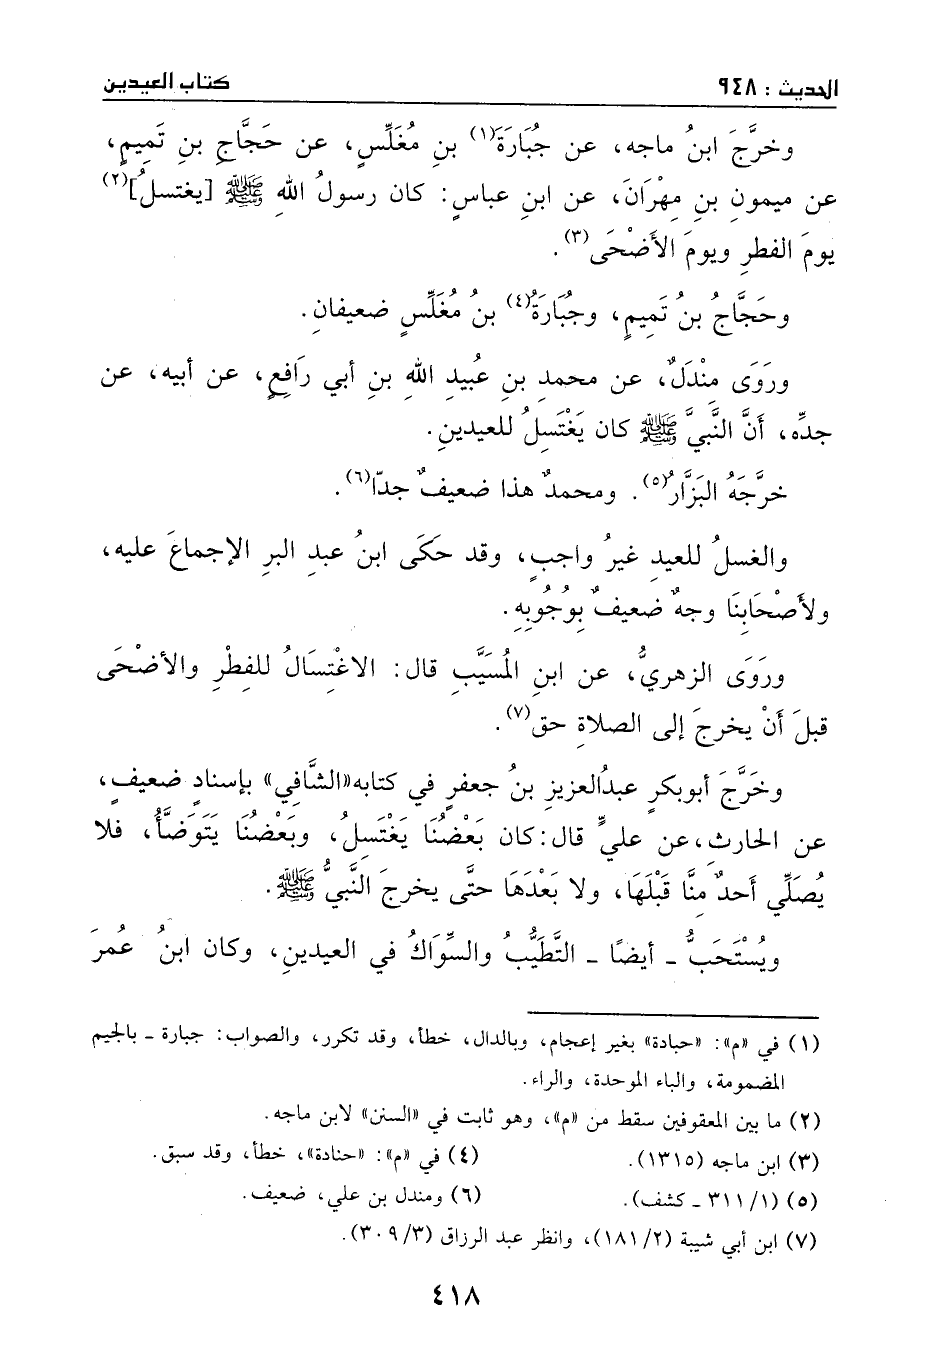 الحديث : ٩٤٨ كتاب العيدين
وخرَّجَ ابنُ ماجه، عن جُبَارَةَ(١) بنِ مُغَلِّسٍ، عن حَجَّاجِ بنِ تَميمٍ،
عن ميمونِ بنِ مِهْرَانَ، عن ابنِ عباسٍ: كان رسولُ اللهِ ﷺ [يغتسلُ](٢)
يومَ الفطرِ ويومَ الأَضْحَى(٣).
وحَجَّاجُ بنُ تَمِيمٍ، وجُبَارَةُ(٤) بنُ مُغَلِّسٍ ضعيفانِ.
ورَوَى مِنْدَلٌ، عن محمدِ بنِ عُبيدِ اللهِ بنِ أبي رَافِعٍ، عن أبيه، عن
جدِّه، أَنَّ النَّبيَّ ﷺ كان يَغْتَسِلُ للعيدينِ.
خرَّجَهُ البَزَّارُ(٥). ومحمدٌ هذا ضعيفٌ جدًّا(٦).
والغسلُ للعيدِ غيرُ واجبٍ، وقد حَكَى ابنُ عبدِ البرِ الإجماعَ عليه،
ولأَصْحَابِنَا وجهٌ ضعيفٌ بوُجُوبِهِ.
ورَوَى الزهريُّ، عن ابنِ المُسَيَّبِ قال: الاغْتِسَالُ للفِطْرِ والأضْحَى
قبلَ أَنْ يخرجَ إلى الصلاةِ حق(٧).
وخَرَّجَ أبوبكرٍ عبدُالعزيزِ بنُ جعفرٍ في كتابه«الشَّافِي» بإسنادٍ ضعيفٍ،
عن الحارثِ،عن عليٍّ قال:كان بَعْضُنَا يَغْتَسلُ، وبَعْضُنَا يَتَوَضَّأُ، فلا
يُصَلِّي أحدٌ مِنَّا قَبْلَهَا، ولا بَعْدَهَا حتَّى يخرجَ النَّبيُّ ﷺ.
ويُسْتَحَبُّ - أيضًا - التَّطَيُّبُ والسِّوَاكُ في العيدينِ، وكان ابنُ عُمرَ
(١) في «م»: «حبادة» بغير إعجام، وبالدال، خطأ، وقد تكرر، والصواب: جبارة - بالجيم
المضمومة، والباء الموحدة، والراء.
(٢) ما بين المعقوفين سقط من «م»، وهو ثابت في «السنن» لابن ماجه.
(٣) ابن ماجه (١٣١٥). (٤) في «م»: «حنادة»، خطأ، وقد سبق.
(٥) (١/ ٣١١ - كشف). (٦) ومندل بن علي، ضعيف.
(٧) ابن أبي شيبة (٢/ ١٨١)، وانظر عبد الرزاق (٣/ ٣٠٩).
٤١٨